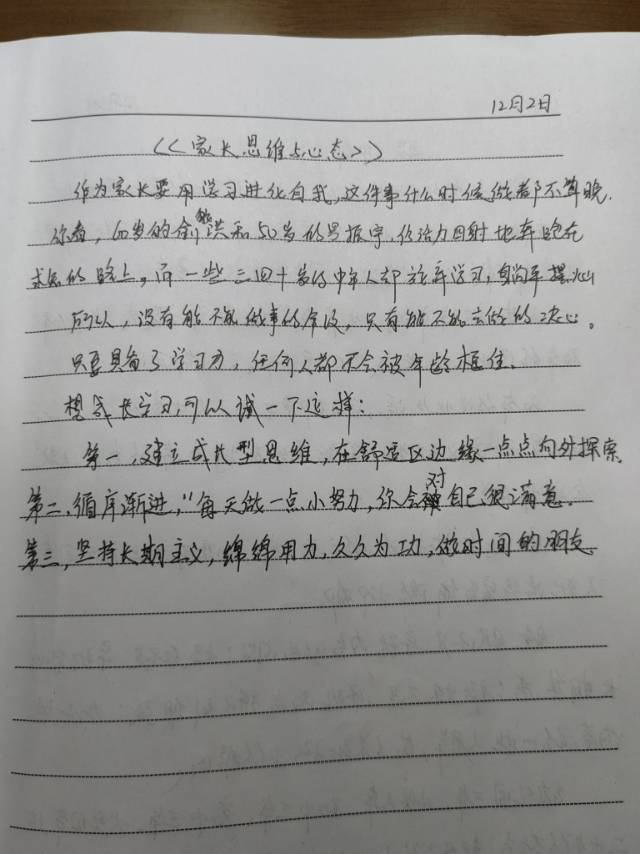 12月2日
《《家长思维与心态》》
作为家长要用学习进化自我,这件事什么时候做都不算晚.
你看,60岁的俞敏洪和50岁的吴振宇,依活力四射地奔跑在
求知的路上,而一些三四十岁的中年人却放弃学习,
所以,没有能不能做事的年段,只有能不能去做的决心。
只要具备了学习力,任何人都不会被年龄框住.
想成长学习,可以试一下这样:
第一,建立成长型思维,在舒适区边缘一点点向外探索.
第二、循序渐进,"每天做一点小努力,你会对自己很满意.
第三,坚持长期主义,绵绵用力,久久为功,做时间的朋友